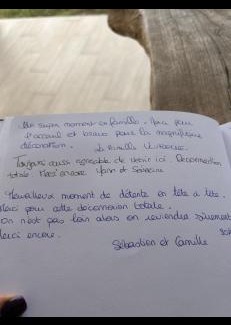 Un super moment en famille. Merci pour
l'accueil et bravo pour la magnifique
décoration. La famille
Toujours aussi agréable de venir ici. Déconnexion
totale. Merci encore. Yann et
Merveilleux moment de détente en tête à tête.
Merci pour cette déconnexion totale.
On n'est pas loin alors on reviendra sûrement
Merci encore.
Sébastien et Camille